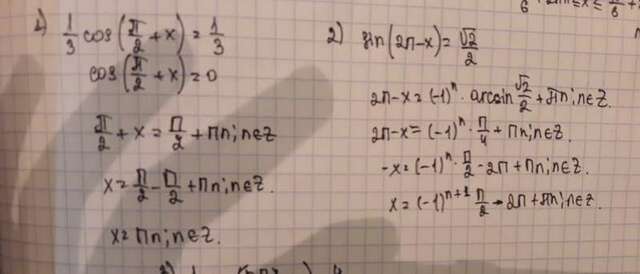 1) 1/3 cos(π/2 + x) = 1/3
cos(π/2 + x) = 0
π/2 + x = π/2 + πn; n∈Z
x = π/2 - π/2 + πn; n∈Z.
x = πn; n∈Z.
2) sin(2π-x) = √2/2
2π-x = (-1)ⁿ · arcsin √2/2 + πn; n∈Z.
2π-x = (-1)ⁿ · π/4 + πn; n∈Z.
-x = (-1)ⁿ · π/2 - 2π + πn; n∈Z.
x = (-1)ⁿ⁺¹ π/2 - 2π + πn; n∈Z.